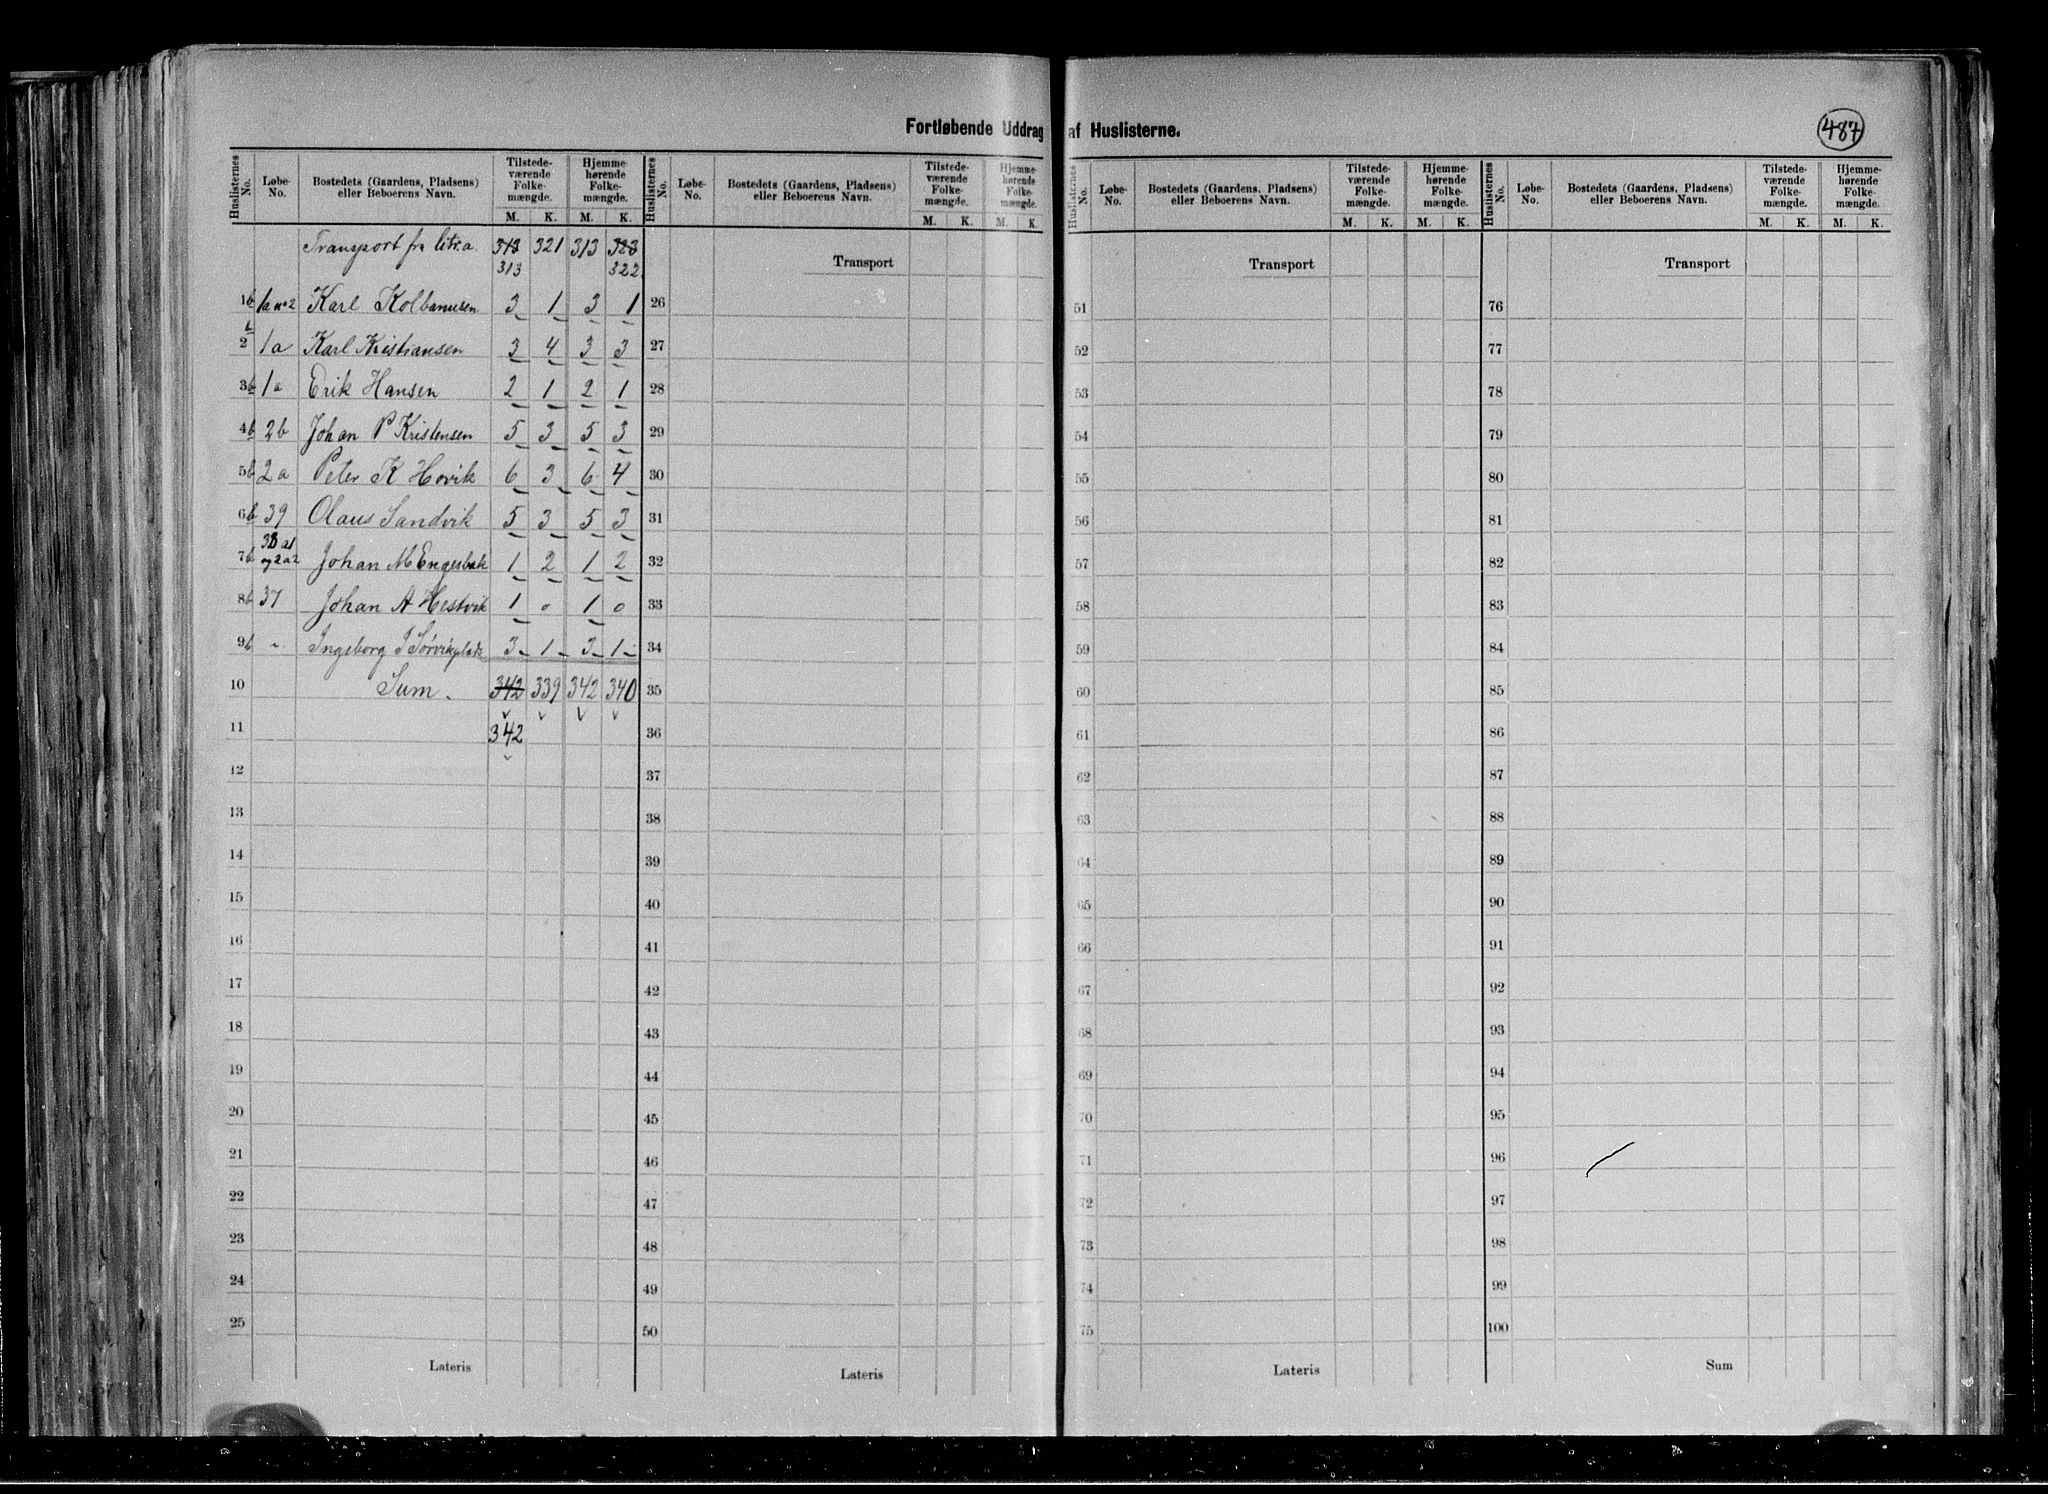 Fortløbende Uddrag af Huslisterne.
487
Huslisternes No. Løbe-No. Bostedets (Gaardens, Pladsens) eller Beboerens Navn. Tilstedeværende Folkemængde. M. K. Hjemmehørende Folkemængde. M. K.
Transport fra litr. a. 313 321 313 323
313 322
1b 1a no 2 Karl Kolbanusen 3 1 3 1
2b 1a Karl Kristiansen 3 4 3 3
3b 1a Erik Hansen 2 1 2 1
4b 2b Johan P Kristensen 5 3 5 3
5b 2a Peter K Hovik 6 3 6 4
6b 39 Olaus Sandvik 5 3 5 3
7b 38 a1 og 2 a 2 Johan M Engesbak 1 2 1 2
8b 37 Johan A Hestvik 1 0 1 0
9b " Ingeborg J Sørvikplads 3 1 3 1
10 Sum. 342 339 342 340
11 342
12
13
14
15
16
17
18
19
20
21
22
23
24
25
Lateris
Huslisternes No. Løbe-No. Bostedets (Gaardens, Pladsens) eller Beboerens Navn. Tilstedeværende Folkemængde. M. K. Hjemmehørende Folkemængde. M. K.
Transport
26
27
28
29
30
31
32
33
34
35
36
37
38
39
40
41
42
43
44
45
46
47
48
49
50
Lateris
Huslisternes No. Løbe-No. Bostedets (Gaardens, Pladsens) eller Beboerens Navn. Tilstedeværende Folkemængde. M. K. Hjemmehørende Folkemængde. M. K.
Transport
51
52
53
54
55
56
57
58
59
60
61
62
63
64
65
66
67
68
69
70
71
72
73
74
75
Lateris
Huslisternes No. Løbe-No. Bostedets (Gaardens, Pladsens) eller Beboerens Navn. Tilstedeværende Folkemængde. M. K. Hjemmehørende Folkemængde. M. K.
Transport
76
77
78
79
80
81
82
83
84
85
86
87
88
89
90
91
92
93
94
95
96
97
98
99
100
Sum